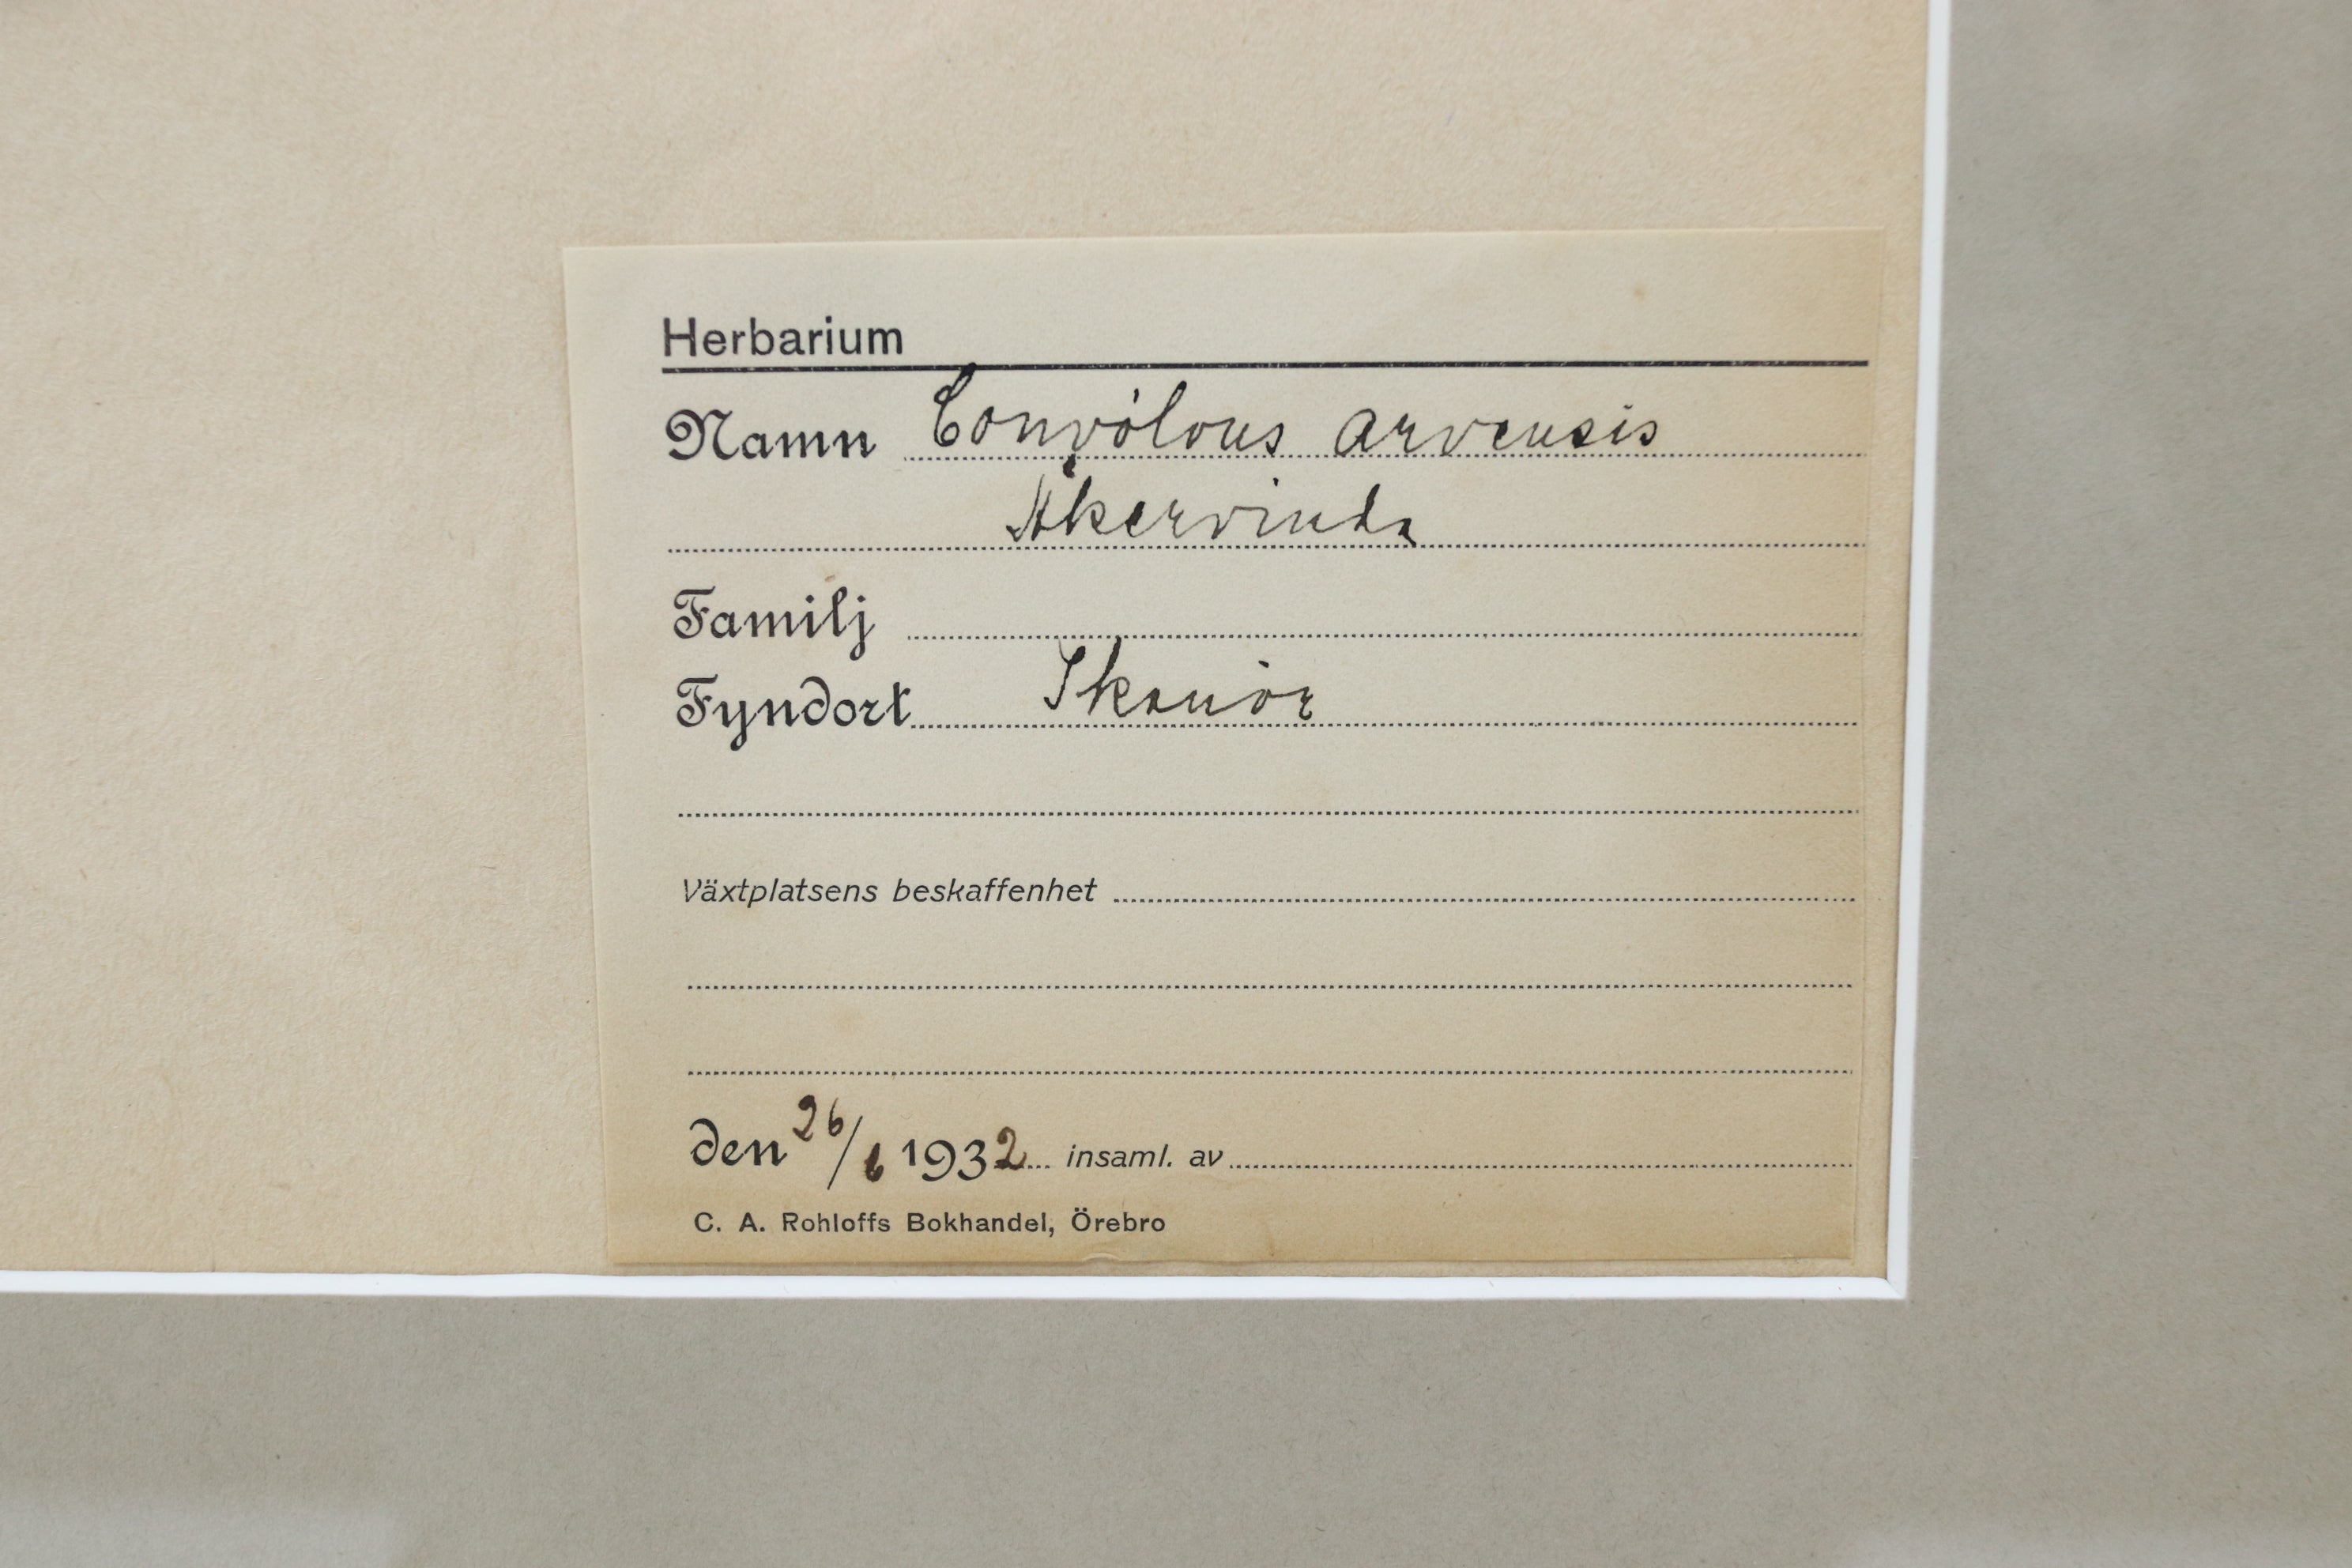 Herbarium
Namn Convólvus arvensis
Åkervinda
Familj
Fyndort Skanör
Växtplatsens beskaffenhet
den 26/6 1932 insaml. av
C. A. Rohloffs Bokhandel, Örebro